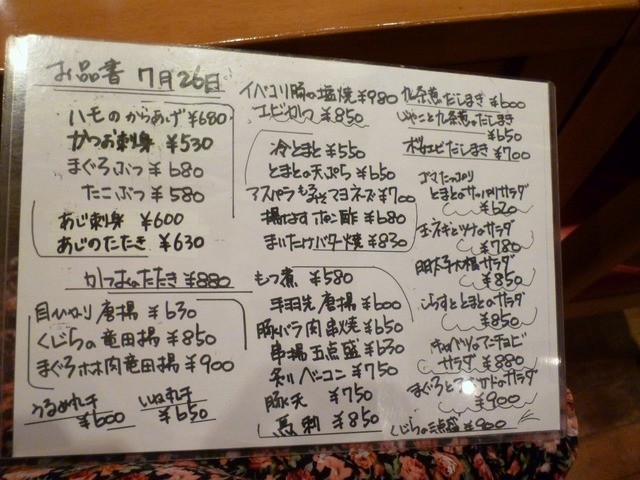 お品書 7月26日
ハモのからあげ ¥680
かつお刺身 ¥530
まぐろぶつ ¥680
たこぶつ ¥580
あじ刺身 ¥600
あじのたたき ¥630
かつおのたたき ¥880
目ひかり唐揚 ¥630
くじらの竜田揚 ¥850
まぐろホホ肉竜田揚 ¥900
うるめ丸干 ¥600
いわし丸干 ¥650
イベコリ豚の塩焼 ¥980
エビカツ ¥850
冷とまと ¥550
とまとの天ぷら ¥650
アスパラもろみそマヨネーズ ¥700
揚なす ポン酢 ¥680
まいたけバター焼 ¥830
もつ煮 ¥580
手羽先唐揚 ¥600
豚バラ肉串焼 ¥650
串揚五点盛 ¥630
炙りベーコン ¥750
豚天 ¥750
馬刺 ¥850
九条葱のだしまき ¥600
じゃこと九条葱のだしまき
¥650
桜エビだしまき ¥700
ゴマたっぷり
とまとのサッパリサラダ
¥620
玉ネギとツナのサラダ
¥780
明太子大根サラダ
¥850
しらすととまとのサラダ
¥850
キャベツのアンチョビ
サラダ ¥880
まぐろとアボカドのサラダ
¥900
くじらの三点盛 ¥900